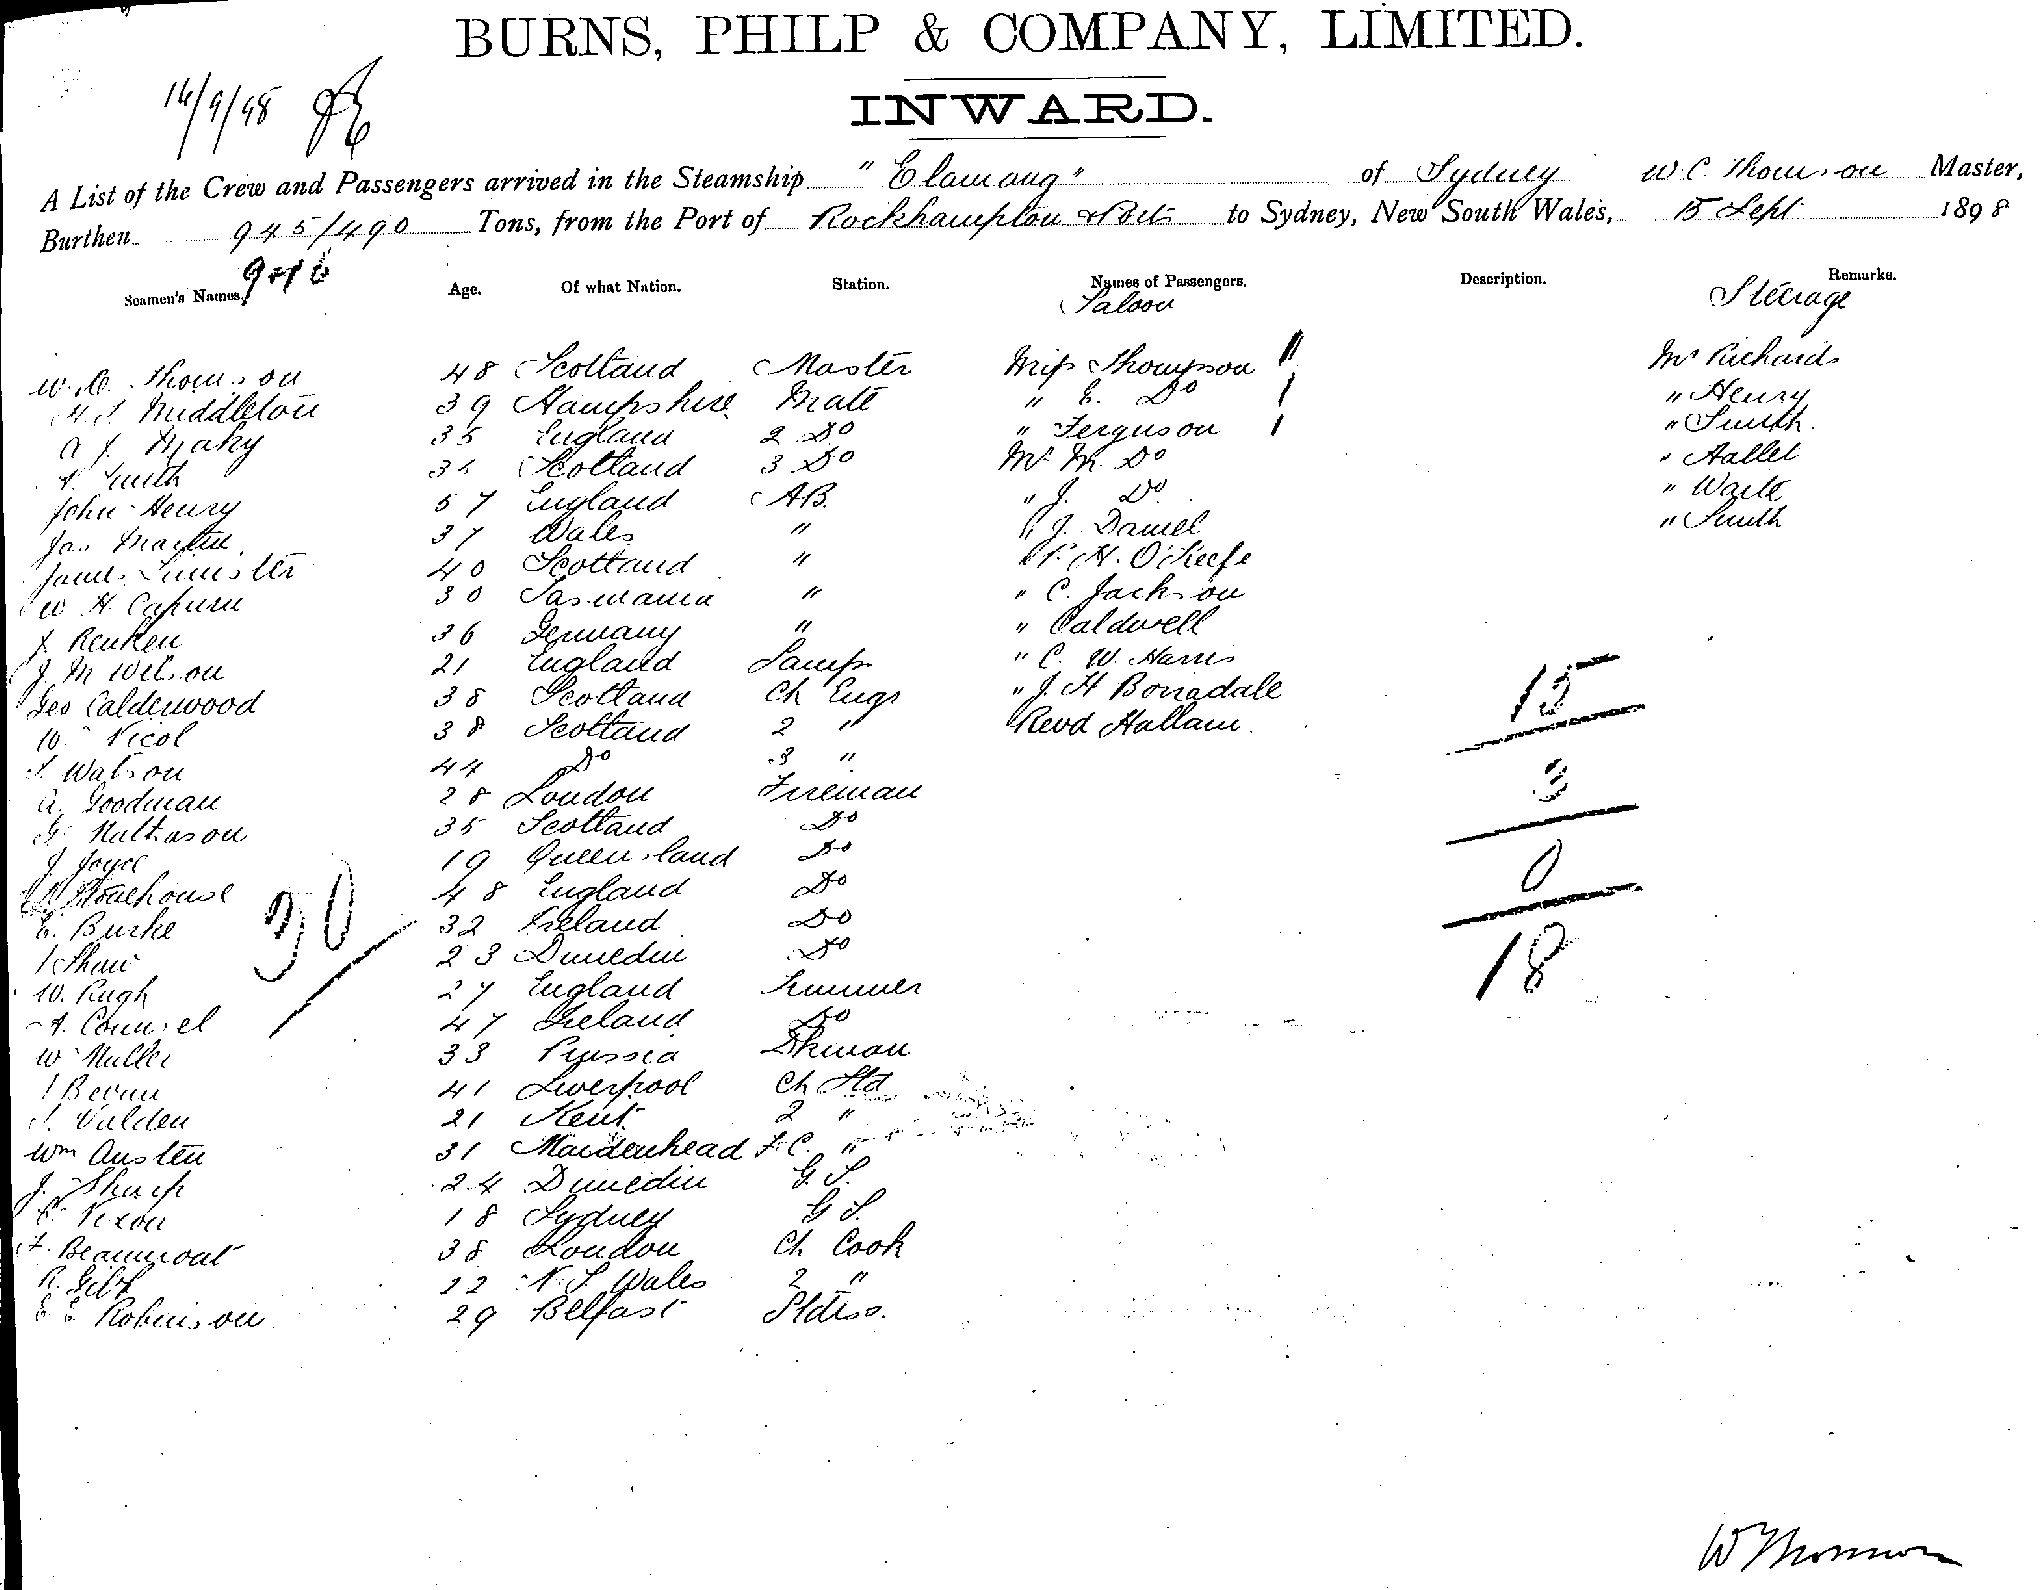 BURNS, PHILP & COMPANY, LIMITED.
INWARD.
A List of the Crew and Passengers arrived in the Steamship "Elamang" of Sydney W C Thomson Master,
Burthen 945/490 Tons, from the Port of Rockhampton & Ports to Sydney, New South Wales, 15 Sept 1898
Seamen's Names. Age. Of what Nation. Station. Names of Passengers. Description. Remarks.
Saloon Steerage
W. C. Thomson 48 Scotland Master Miss Thompson Mr Richards
Middleton 39 Hampshire Mate " E. Do " Henry
A J. Mahy 35 England 2 Do " Ferguson " Smith.
Smith Scotland 3 Do Mr M. Do " Hallet
John Henry 57 England AB. " J. Do "
Jas Martin 37 Wales " " J. Daniel " Smith
James 40 Scotland " H. O'Keefe
W H. 30 Tasmania " " C. Jackson
J. Renken 36 Germany " " Caldwell
J. M Wilson 21 England Lamps " C. W. Harris
Geo Calderwood 38 Scotland Ch Engr " J. H
W. Nicol 38 Scotland 2 " Revd Hallam.
Watson 44 Do 3 "
A. Goodman 28 London Fireman
Mathason 35 Scotland Do
J Joyce 19 Queensland Do
48 England Do
E. Burke 32 Ireland Do
Shaw 23 Dunedin Do
W. Pugh 27 England Trimmer
A. Counsel 47 Ireland Do
W Muller 33 Prussia Dkman
Bevan 41 Liverpool Ch Std
21 Kent 2 "
Wm Austen 31 Maidenhead F. C. "
J. Sharp 24 Dunedin G. S.
C. Nixon 18 Sydney G S.
F. Beaumont 38 London Ch Cook
R. 22 N. S. Wales 2 "
E E Robinson 29 Belfast Stdess.
30
15
3
0
18
W Thomson